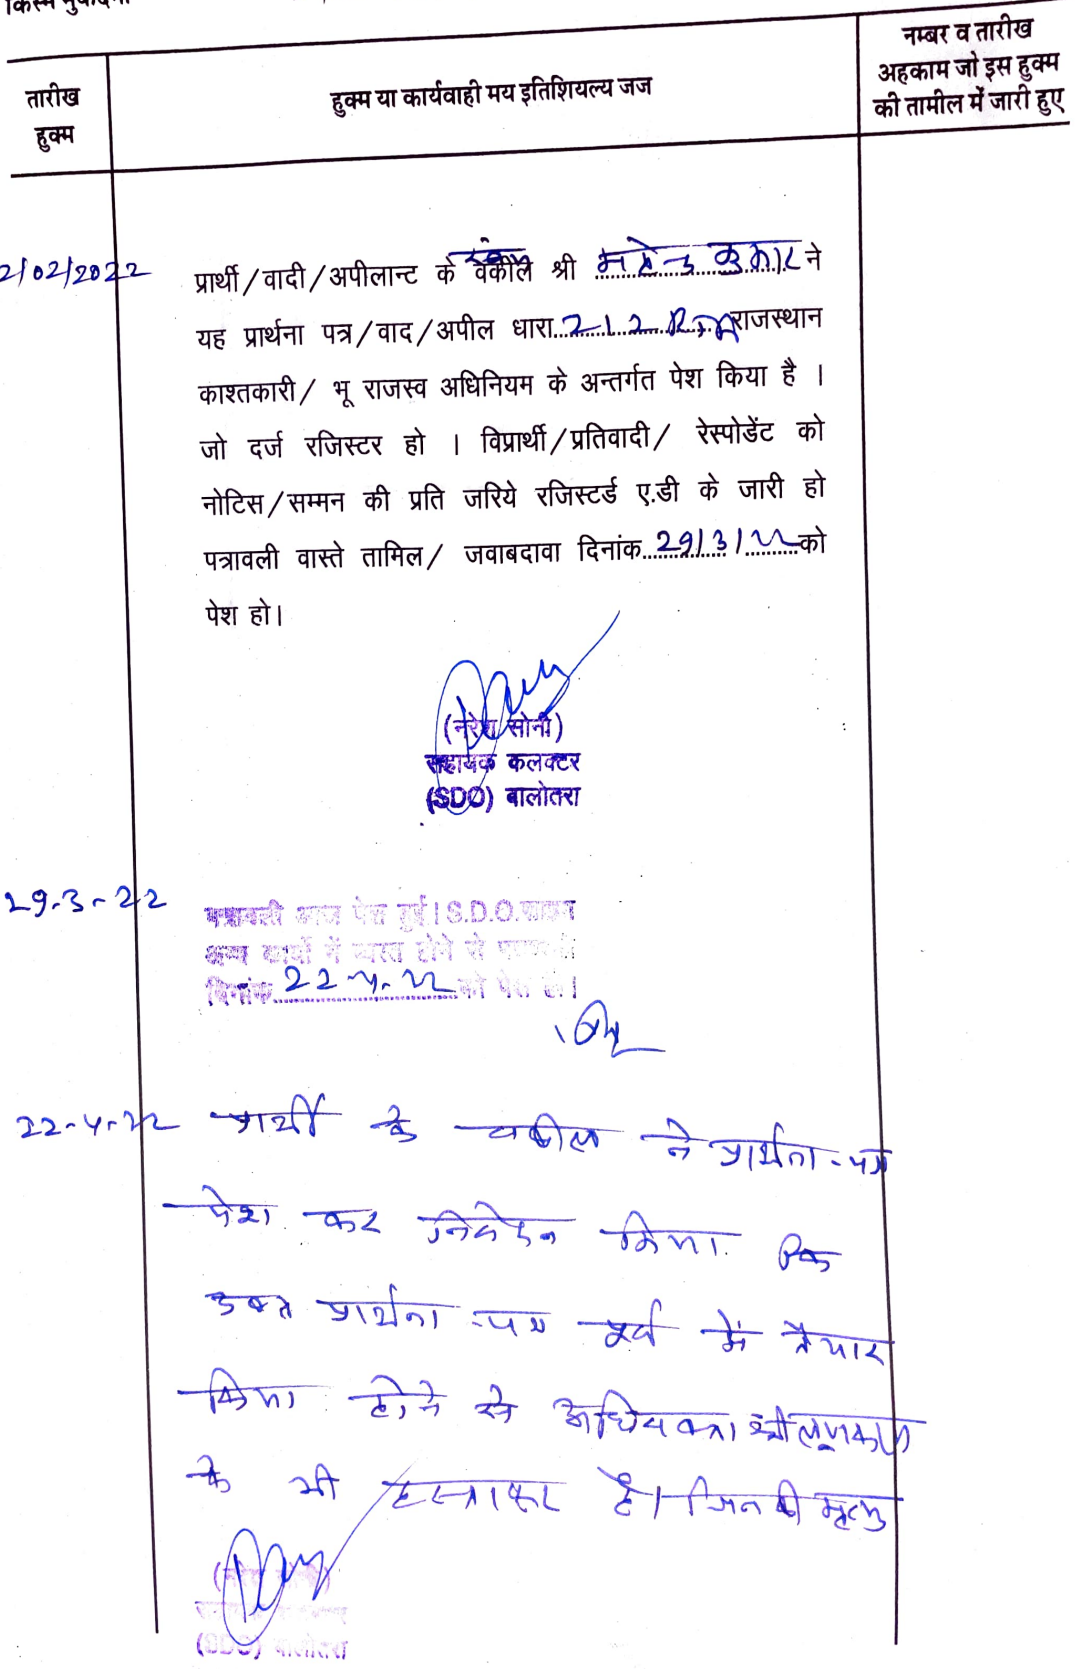 किस्म मुकदमा
तारीख
हुक्म
हुक्म या कार्यवाही मय इतिशियल्य जज
नम्बर व तारीख
अहकाम जो इस हुक्म
की तामील में जारी हुए
2/02/2022
प्रार्थी/वादी/अपीलान्ट के वकील श्री महेन्द्र कुमार ने
यह प्रार्थना पत्र/वाद/अपील धारा 212 राजस्थान
काश्तकारी/ भू राजस्व अधिनियम के अन्तर्गत पेश किया है ।
जो दर्ज रजिस्टर हो । विप्रार्थी/प्रतिवादी/ रेस्पोडेंट को
नोटिस/सम्मन की प्रति जरिये रजिस्टर्ड ए.डी के जारी हो
पत्रावली वास्ते तामिल/ जवाबदावा दिनांक 29/3/22 को
पेश हो।
(नरेश सोनी)
सहायक कलक्टर
(SDO) बालोतरा
29-3-22
पत्रावली आज पेश हुई। S.D.O.
अन्य कार्यों में व्यस्त होने से
दिनांक 22-4-22 को पेश हो।
22-4-22
प्रार्थी के वकील ने प्रार्थना-पत्र
पेश कर निवेदन किया कि
उक्त प्रार्थना-पत्र पूर्व में तैयार
किया होने से अधिवक्ता श्री
के भी हस्ताक्षर है। जिनकी मृत्यु
(नरेश सोनी)
सहायक कलक्टर
(SDO) बालोतरा